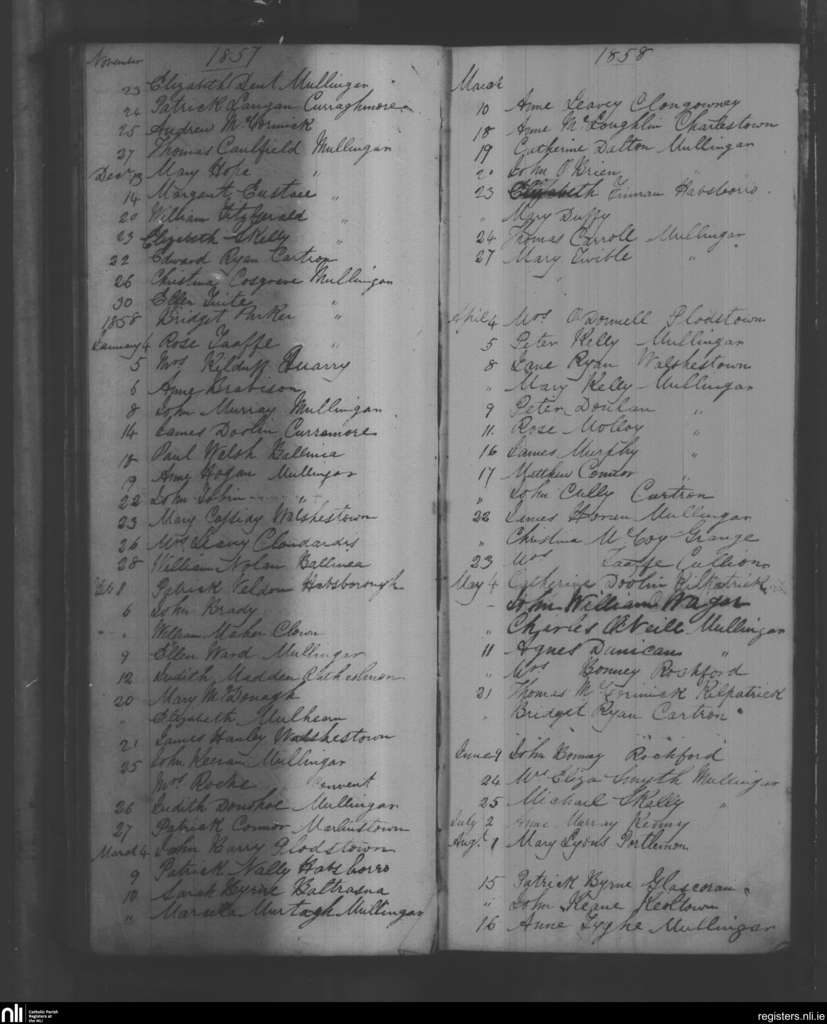 November 1857
23 Elizabeth Dent Mullingar
24 Patrick Langan Curraghmore
25 Andrew McCormick
27 Thomas Caulfield Mullingar
Decr 13 Mary Hope "
14 Margaret Eustace "
20 William Fitzgerald "
23 Elizabeth Skelly "
22 Edward Ryan Cartron
26 Christina Cosgrove Mullingar
30 Ellen Tuite "
1858 Bridget Parker "
January 4 Rose Taaffe "
5 Mrs Kilduff Quarry
6 Anne Brabison
8 John Murray Mullingar
14 James Doolin Curramore
18 Paul Welsh Ballinea
19 Amy Hogan Mullingar
22 John Tobin "
23 Mary Cassidy Walshestown
26 Mrs Leavy Clondardis
28 William Nolan Ballinea
Feb 1 Patrick Veldon Habsborough
6 John Brady
" William Maher Clown
9 Ellen Ward Mullingar
12 Judith Madden
20 Mary McDonagh
" Elizabeth Mulhern
21 James Hanley Walshestown
25 John Keenan Mullingar
Mrs Roche Convent
26 Judith Donohoe Mullingar
27 Patrick Connor Marlinstown
March 4 John Barry Plodstown
9 Patrick Nally Habsborro
10 Sarah Byrne Baltrasna
" Marcella Murtagh Mullingar
1858
March
10 Anne Leavey Clongowney
18 Anne McLoughlin Charlestown
19 Catherine Dalton Mullingar
20 John O'Brien
23 Finnan Habsborro
" Mary Duffy
24 Thomas Carroll Mullingar
27 Mary Twible "
April 4 Mrs O'Donnell Plodstown
5 Peter Kelly Mullingar
8 Jane Ryan Walshestown
" Mary Kelly Mullingar
9 Peter Doolan "
11 Rose Molloy "
16 James Murphy "
17 Matthew Connor "
" John Cully Cartron
22 James Horan Mullingar
" Christina McCoy Grange
23 Mrs Taaffe Cullion
May 4 Catherine Doolin Kilpatrick
John William Wager
" Charles O'Neill Mullingar
11 Agnes Dunican "
" Mrs Bomney Rockford
21 Thomas McCormick Kilpatrick
" Bridget Ryan Cartron
June 9 John Bomay Rockford
24 Mrs Eliza Smyth Mullingar
25 Michael Skelly "
July 2 Anne Murray Kenny
Augt 1 Mary Lyons Portlemon
15 Patrick Byrne Glascorn
" John Keane Keoltown
16 Anne Tyghe Mullingar
nli Catholic Parish
Registers at
the NLI
registers.nli.ie